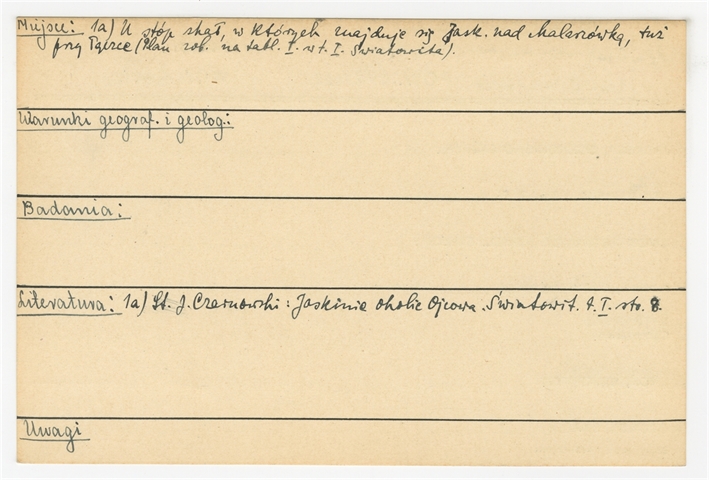 Miejsce: 1a) U stóp skał, w których znajduje się Jask. nad Malarzówką, tuż
przy Łące (Plan rob. na tabl. I. w t. I. Światowita).
Warunki geograf. i geolog.:
Badania:
Literatura: 1a) St. J. Czarnowski: Jaskinie okolic Ojcowa. Światowit. t. I. str. 8.
Uwagi